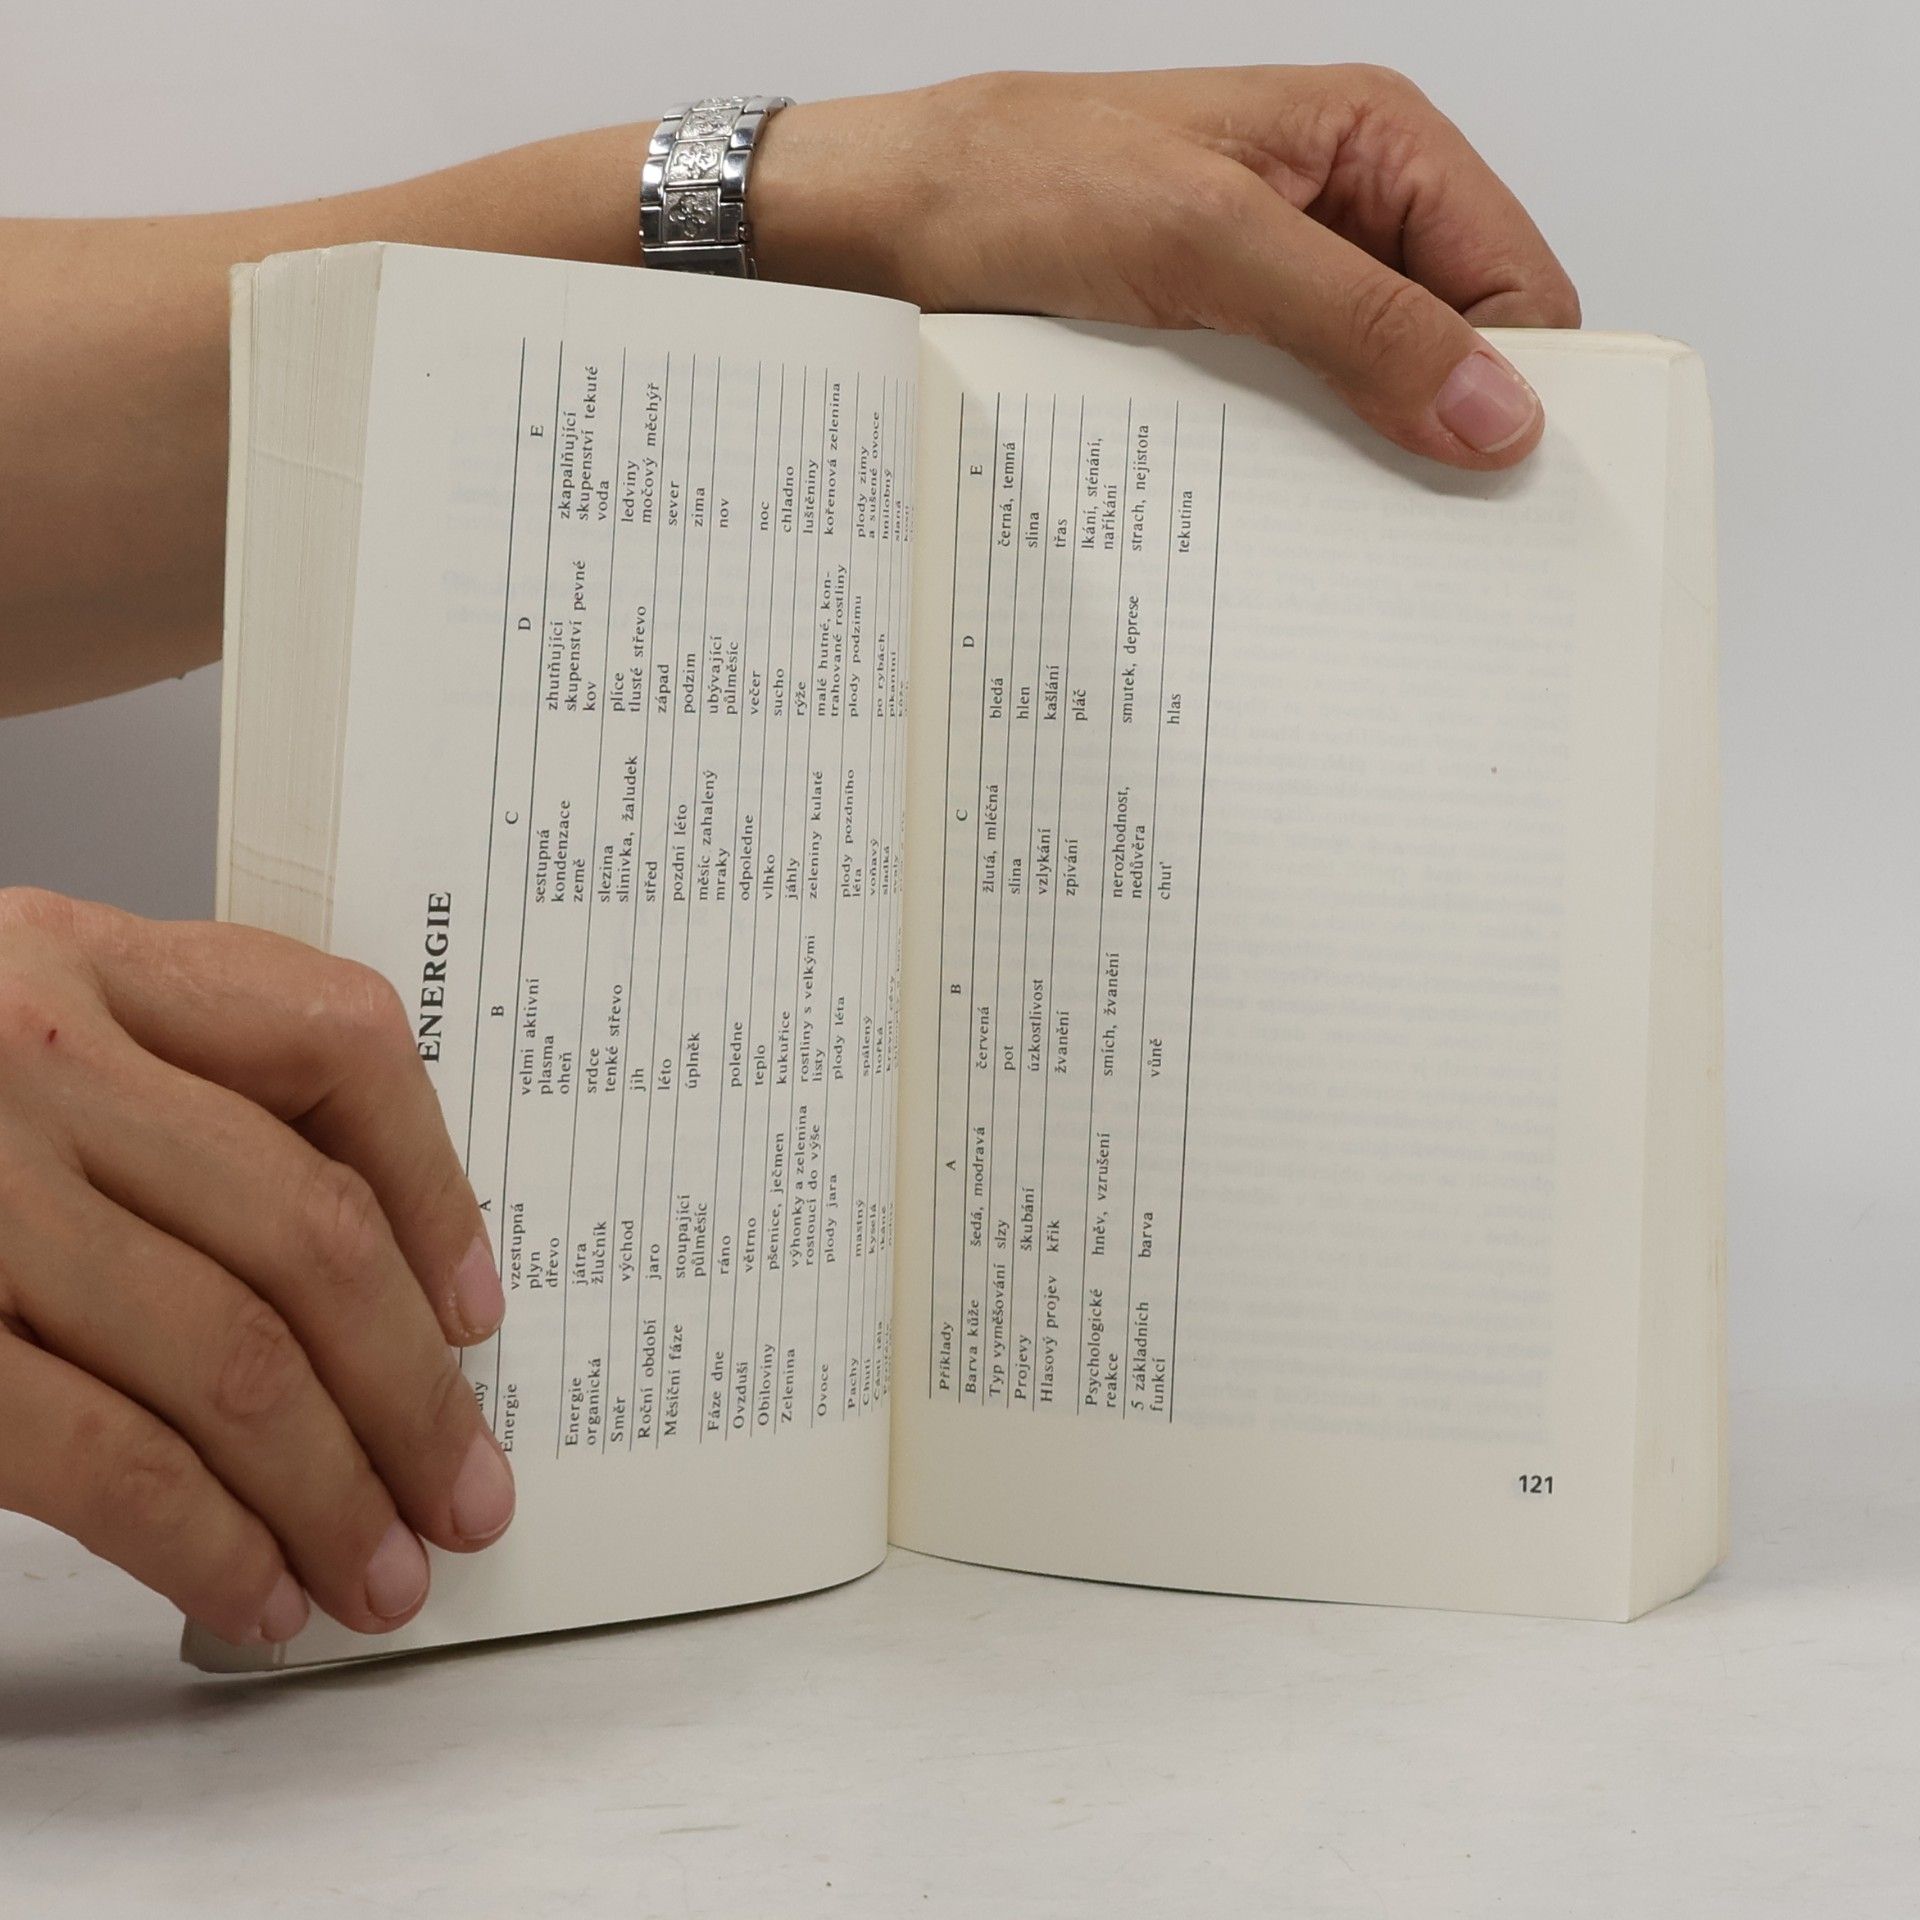 ENERGIE
A B C D E
Energie vzestupná velmi aktivní sestupná zhutňující zkapalňující
plyn plasma kondenzace skupenství pevné skupenství tekuté
dřevo oheň země kov voda
Energie játra srdce slezina plíce ledviny
organická žlučník tenké střevo slinivka, žaludek tlusté střevo močový měchýř
Směr východ jih střed západ sever
Roční období jaro léto pozdní léto podzim zima
Měsíční fáze stoupající úplněk měsíc zahalený ubývající nov
půlměsíc mraky půlměsíc
Fáze dne ráno poledne odpoledne večer noc
Ovzduší větrno teplo vlhko sucho chladno
Obiloviny pšenice, ječmen kukuřice jáhly rýže luštěniny
Zelenina výhonky a zelenina rostliny s velkými zeleniny kulaté malé hutné, kon- kořenová zelenina
rostoucí do výše listy trahované rostliny
Ovoce plody jara plody léta plody pozdního plody podzimu plody zimy
léta a sušené ovoce
Pachy mastný spálený voňavý po rybách hnilobný
Chuti kyselá hořká sladká pikantní slaná
Příklady A B C D E
Barva kůže šedá, modravá červená žlutá, mléčná bledá černá, temná
Typ vyměšování slzy pot slina hlen slina
Projevy škubání úzkostlivost vzlykání kašlání třas
Hlasový projev křik žvanění zpívání pláč lkání, sténání,
naříkání
Psychologické hněv, vzrušení smích, žvanění nerozhodnost, smutek, deprese strach, nejistota
reakce nedůvěra
5 základních barva vůně chuť hlas tekutina
funkcí
121